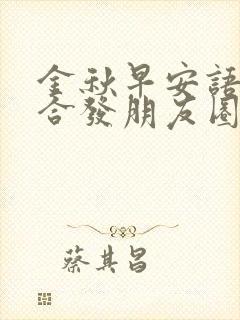 金秋早安語
合發朋友圈
蔡其昌